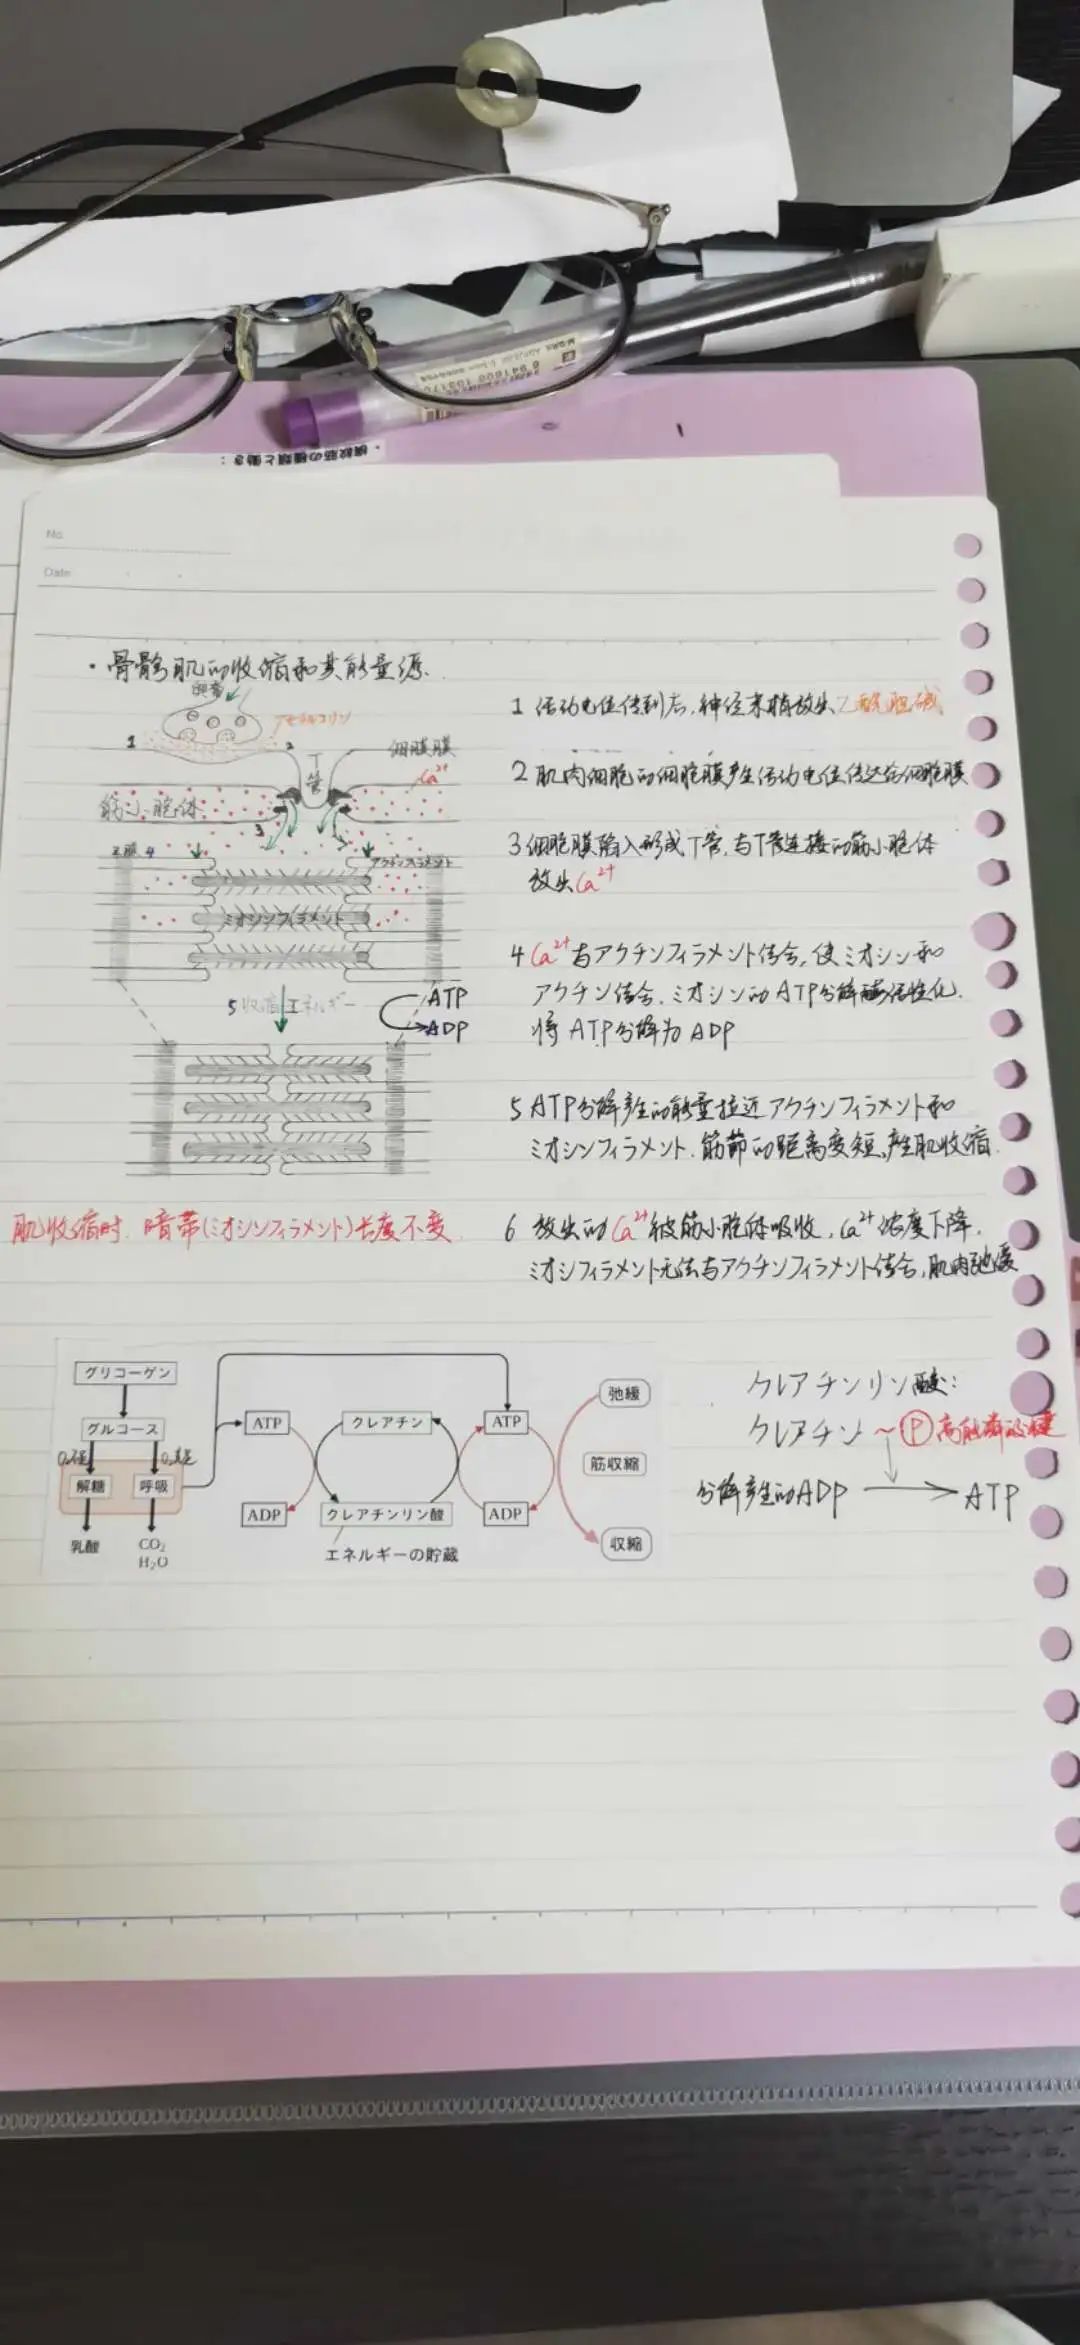 横紋筋の種類と働き：
No.
Date
・骨骼肌的收缩和其能量源.
興奮
アセチルコリン
1
2
T管
细胞膜
Ca²⁺
筋小胞体
3
Z膜 4
アクチンフィラメント
ミオシンフィラメント
5 収縮エネルギー
ATP
ADP
肌收缩时, 暗带(ミオシンフィラメント)长度不变
1 活动电位传到后, 神经末梢放出乙酰胆碱
2 肌肉细胞的细胞膜产生活动电位传达给细胞膜
3 细胞膜陷入形成T管, 与T管连接的筋小胞体
放出Ca²⁺
4 Ca²⁺与アクチンフィラメント结合, 使ミオシン和
アクチン结合, ミオシン的ATP分解酶活性化.
将ATP分解为ADP
5 ATP分解产生的能量拉近アクチンフィラメント和
ミオシンフィラメント. 筋節的距离变短, 产生肌收缩.
6 放出的Ca²⁺被筋小胞体吸收, Ca²⁺浓度下降.
ミオシフィラメント无法与アクチンフィラメント结合, 肌肉弛缓
グリコーゲン
グルコース
O₂不足
O₂充足
解糖
呼吸
乳酸
CO₂
H₂O
ATP
ADP
クレアチン
クレアチンリン酸
エネルギーの貯蔵
ATP
ADP
弛緩
筋収縮
収縮
クレアチンリン酸:
クレアチン～Ⓟ高能磷酸键
分解产生的ADP → ATP